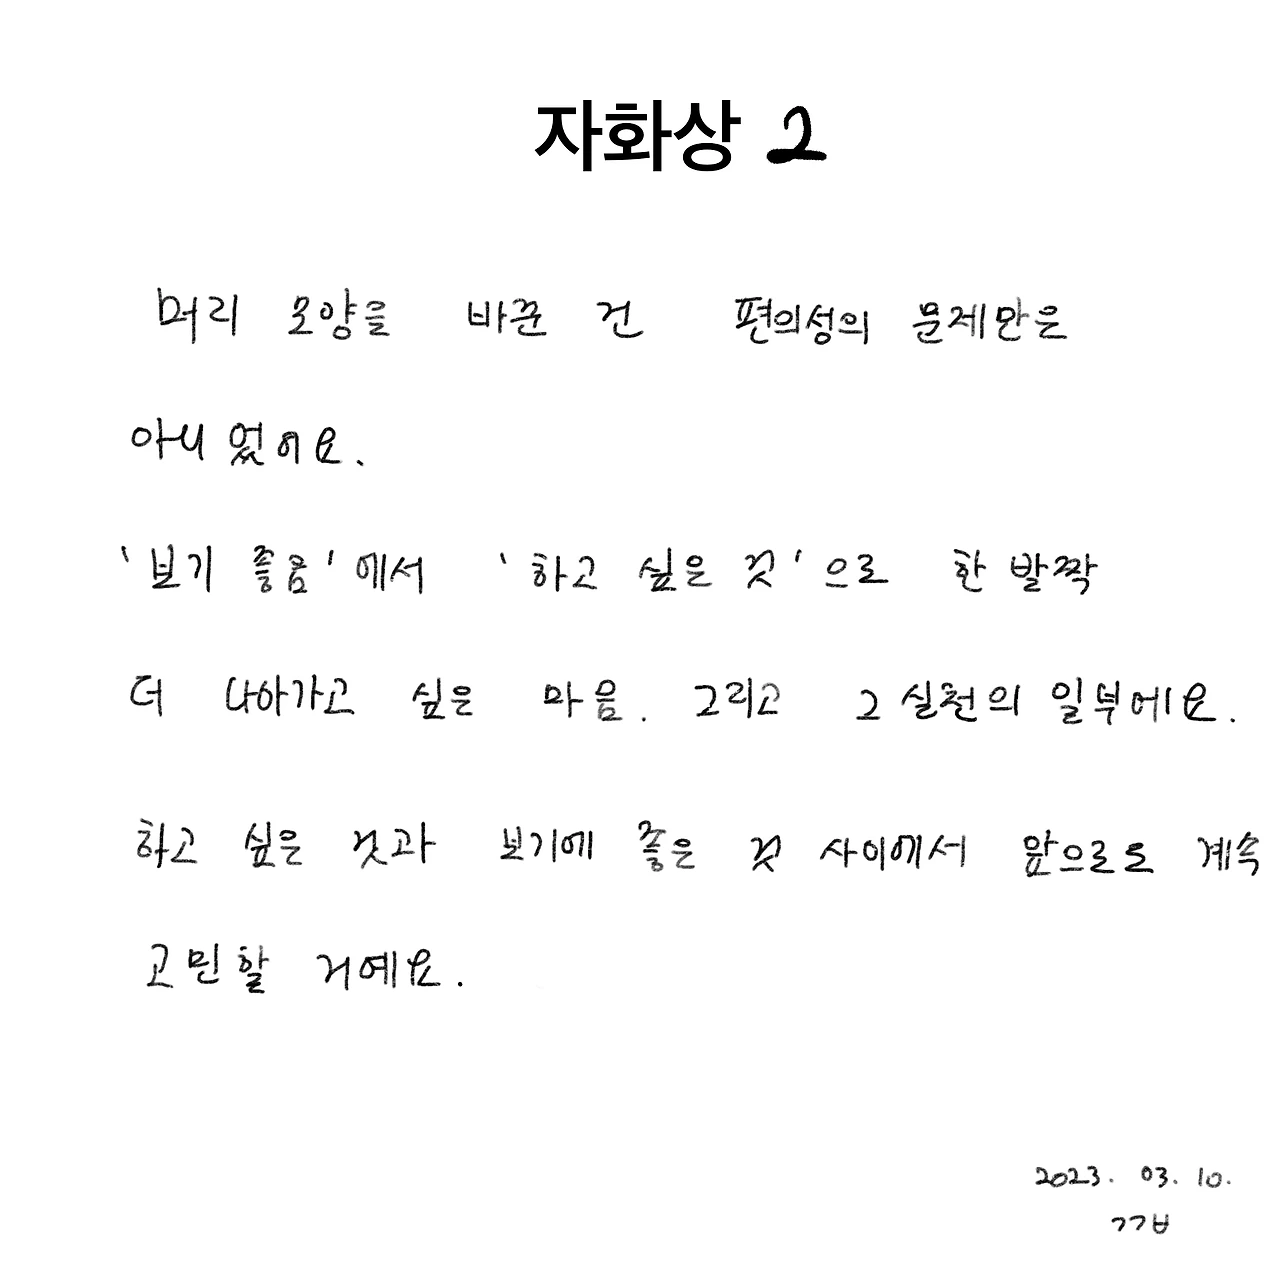 자화상 2
머리 모양을 바꾼 건 편의성의 문제만은
아니었어요.
'보기 좋음'에서 '하고 싶은 것'으로 한 발짝
더 나아가고 싶은 마음. 그리고 그 실천의 일부에요.
하고 싶은 것과 보기에 좋은 것 사이에서 앞으로도 계속
고민할 거예요.
2023. 03. 10.
ㄱㄱㅂ